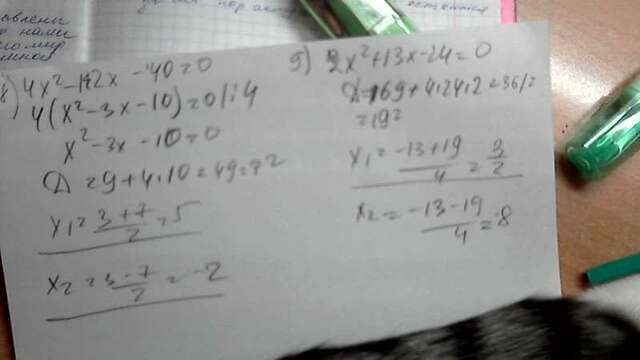 8) 4x²-12x-40=0
4(x²-3x-10)=0/:4
x²-3x-10=0
D=9+4.10=49=7²
x₁=3+7/2=5
x₂=3-7/2=-2
9) 2x²+13x-24=0
D=169+4.24.2=361=
=19²
x₁=-13+19/4=3/2
x₂=-13-19/4=-8